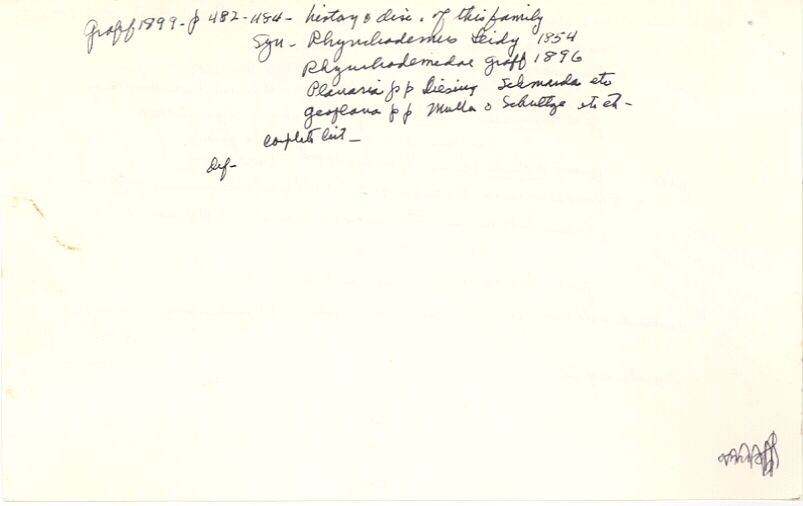 Graff 1899 - p 482-484 - history & disc. of this family
Syn - Rhynchodemus Leidy 1854
Rhynchodemidae Graff 1896
Planaria p p Diesing Schmarda etc
Geoplana p p Muller & Schultze etc etc -
complete list -
Def -